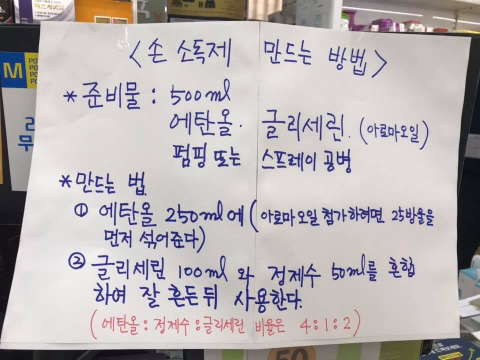 <손 소독제 만드는 방법>
*준비물 : 500ml
에탄올. 글리세린. (아로마오일)
펌핑 또는 스프레이 공병
*만드는 법
① 에탄올 250ml에 (아로마오일 첨가하려면 25방울을
먼저 섞어준다)
② 글리세린 100ml 와 정제수 50ml를 혼합
하여 잘 흔든뒤 사용한다.
(에탄올 : 정제수 : 글리세린 비율은 4:1:2)
50